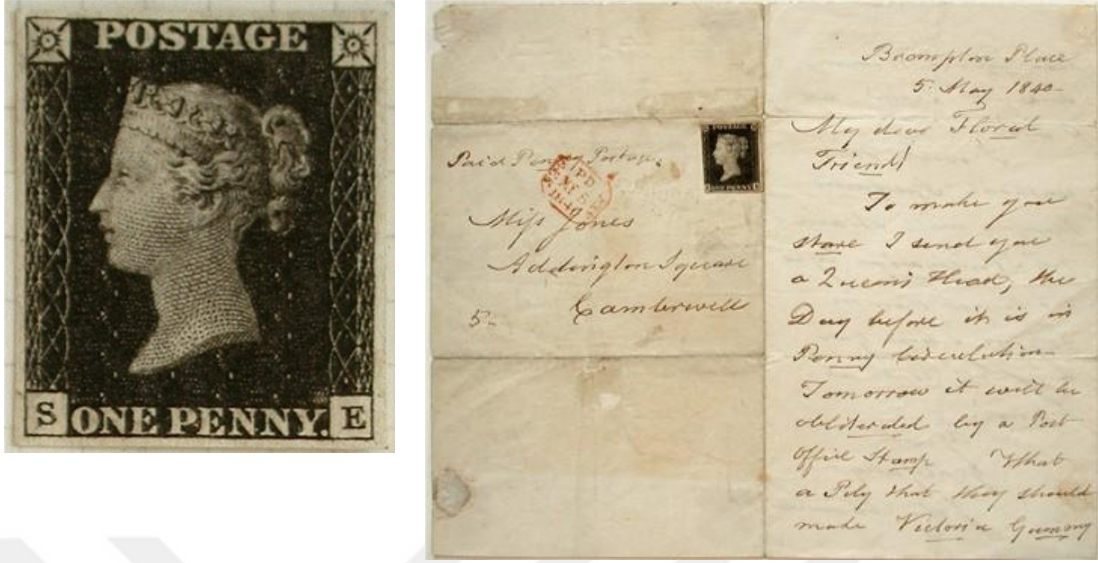 POSTAGE
S ONE PENNY. E
POSTAGE
ONE PENNY
Paid Penny Postage.
PD
1840
Miss Jones
Addington Square
5- Camberwell
Brompton Place
5. May 1840-
My dear Floral
Friend!
To make you
stare I send you
a Queens Head, the
Day before it is in
Penny Circulation-
Tomorrow it will be
obliterated by a Post
Office Stamp What
a Pity that they should
make Victoria Gummy